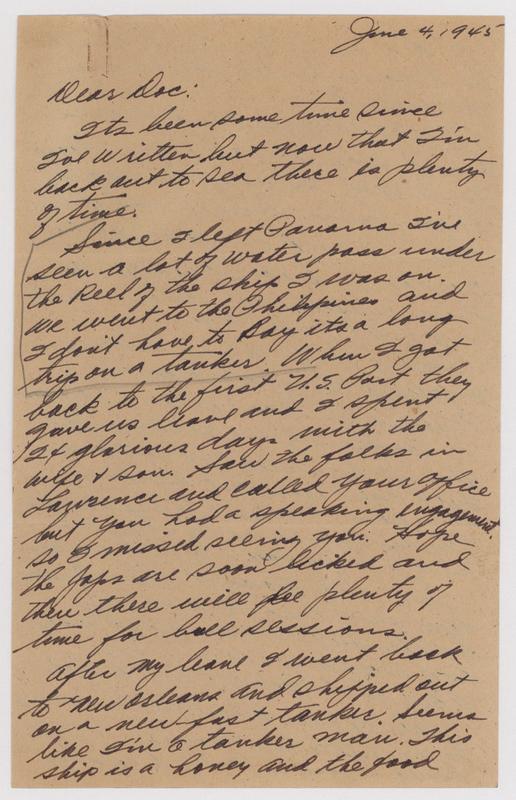 June 4, 1945
Dear Doc:
Its been some time since
I've written but now that I'm
back out to sea there is plenty
of time.
Since I left Panama I've
seen a lot of water pass under
the Keel of the ship I was on.
We went to the Philippines and
I don't have to say its a long
trip on a tanker. When I got
back to the first U.S. Port they
gave us leave and I spent
24 glorious days with the
wife & son. Saw the folks in
Lawrence and called your office
but you had a speaking engagement.
so I missed seeing you. Hope
the Japs are soon licked and
then there will be plenty of
time for bull sessions.
After my leave I went back
to New Orleans and shipped out
on a new fast tanker. Seems
like I'm a tanker man. This
ship is a honey and the food